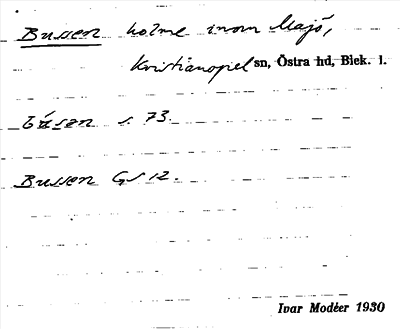 Bussen holme inom Majö,
Kristianopel sn, Östra hd, Blek. l.
s. 73.
Bussen GS 12.
Ivar Modéer 1930